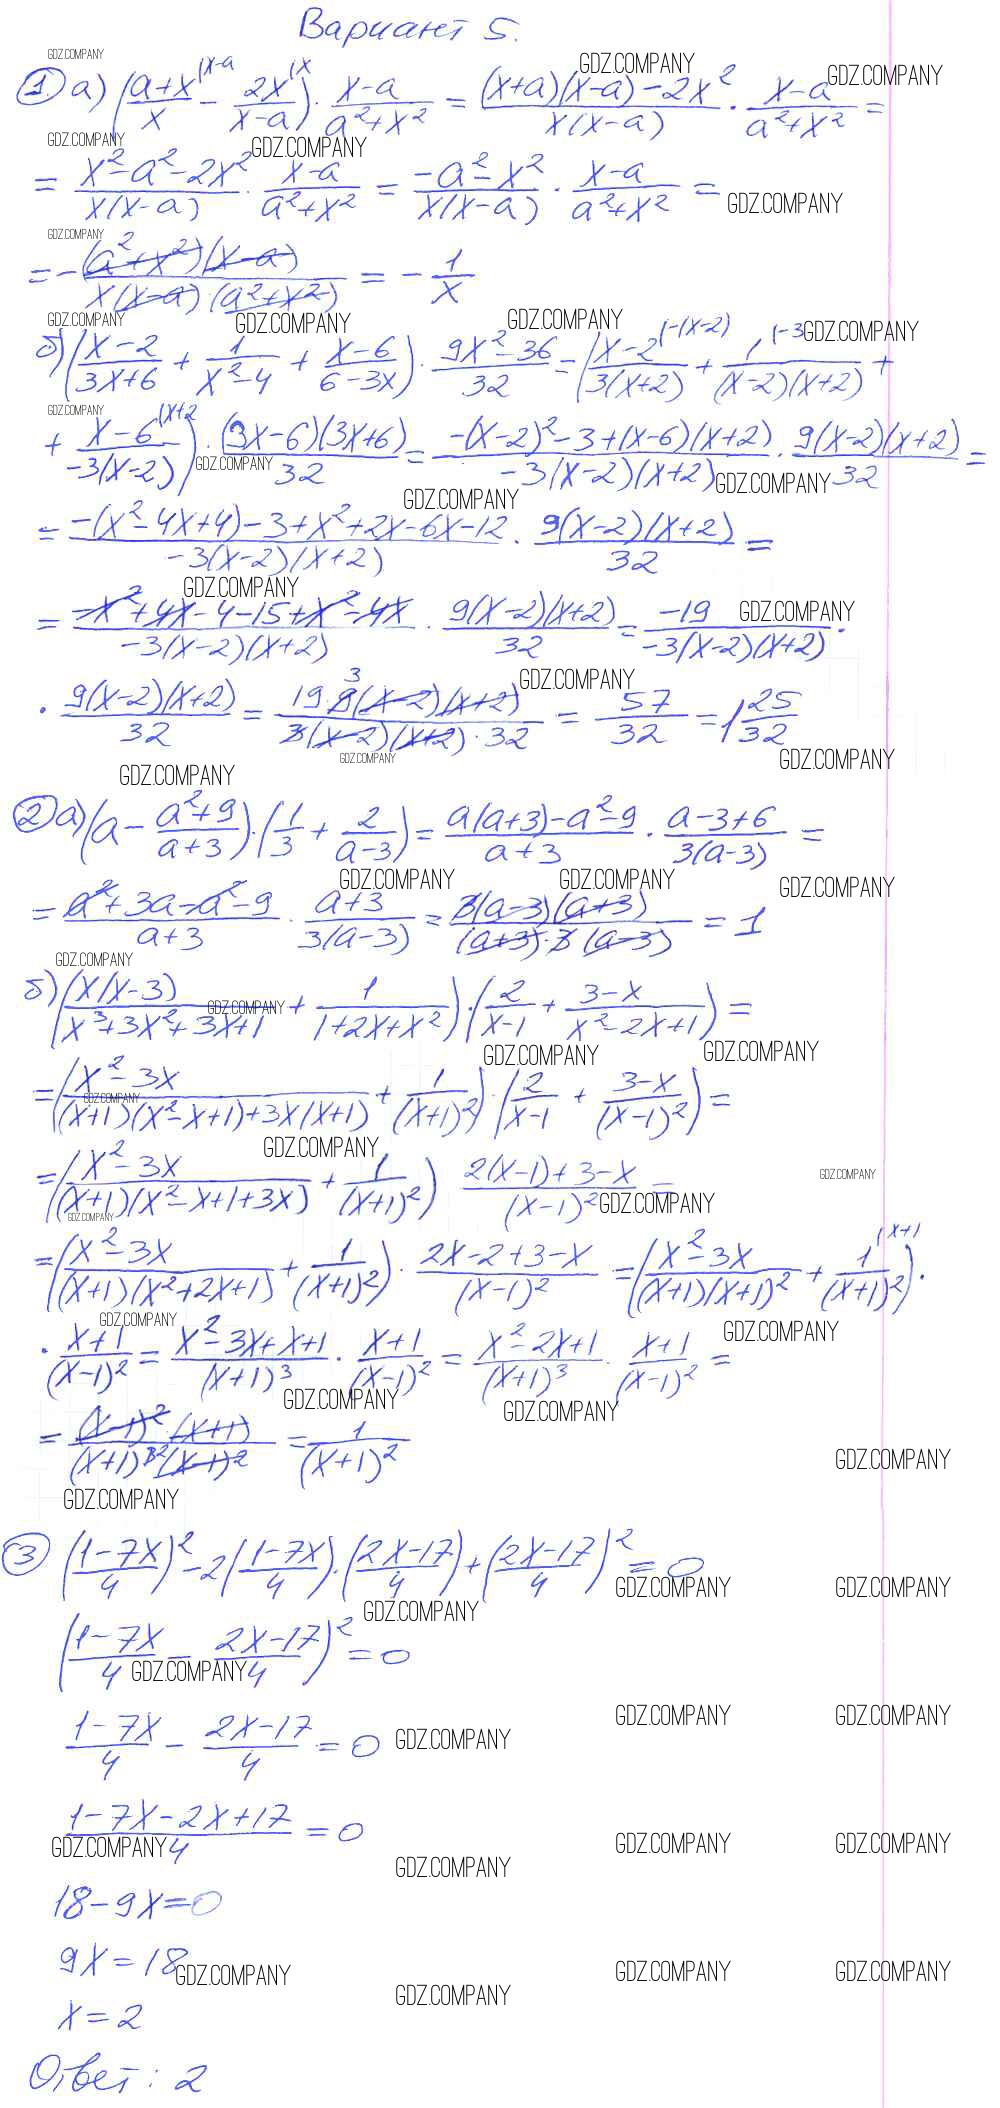 Вариант 5.
① а) ((a+x)/x (x-a − 2x/(x-a) (x) · (x-a)/(a²+x²) = ((x+a)(x-a)-2x²)/(x(x-a)) · (x-a)/(a²+x²) =
= (x²-a²-2x²)/(x(x-a)) · (x-a)/(a²+x²) = (-a²-x²)/(x(x-a)) · (x-a)/(a²+x²) =
= - ((a²+x²)(x-a))/(x(x-a)·(a²+x²)) = - 1/x
б) ((x-2)/(3x+6) + 1/(x²-4) + (x-6)/(6-3x)) · (9x²-36)/32 = ((x-2)/(3(x+2)) (-(x-2) + 1/((x-2)(x+2)) (-3 +
+ (x-6)/(-3(x-2)) (x+2) · ((3x-6)(3x+6))/32 = (-(x-2)²-3+(x-6)(x+2))/(-3(x-2)(x+2)) · (9(x-2)(x+2))/32 =
= (-(x²-4x+4)-3+x²+2x-6x-12)/(-3(x-2)(x+2)) · (9(x-2)(x+2))/32 =
= (-x²+4x-4-15+x²-4x)/(-3(x-2)(x+2)) · (9(x-2)(x+2))/32 = -19/(-3(x-2)(x+2)) ·
· (9(x-2)(x+2))/32 = (19·9(x-2)(x+2))/(3(x-2)(x+2)·32) = 57/32 = 1 25/32
② а) (a - (a²+9)/(a+3)) · (1/3 + 2/(a-3)) = (a(a+3)-a²-9)/(a+3) · (a-3+6)/(3(a-3)) =
= (a²+3a-a²-9)/(a+3) · (a+3)/(3(a-3)) = (3(a-3)(a+3))/((a+3)·3(a-3)) = 1
б) ((x(x-3))/(x³+3x²+3x+1) + 1/(1+2x+x²)) · (2/(x-1) + (3-x)/(x²-2x+1)) =
= ((x²-3x)/((x+1)(x²-x+1)+3x(x+1)) + 1/(x+1)²) · (2/(x-1) + (3-x)/(x-1)²) =
= ((x²-3x)/((x+1)(x²-x+1+3x)) + 1/(x+1)²) (2(x-1)+3-x)/(x-1)² =
= ((x²-3x)/((x+1)(x²+2x+1)) + 1/(x+1)²) · (2x-2+3-x)/(x-1)² = ((x²-3x)/((x+1)(x+1)²) + 1/(x+1)² (x+1) ·
· (x+1)/(x-1)² = (x²-3x+x+1)/(x+1)³ · (x+1)/(x-1)² = (x²-2x+1)/(x+1)³ · (x+1)/(x-1)² =
= ((x-1)²·(x+1))/((x+1)³ ²(x-1)²) = 1/(x+1)²
③ ((1-7x)/4)² - 2((1-7x)/4)·((2x-17)/4) + ((2x-17)/4)² = 0
((1-7x)/4 - (2x-17)/4)² = 0
(1-7x)/4 - (2x-17)/4 = 0
(1-7x-2x+17)/4 = 0
18-9x=0
9x=18
x=2
Ответ: 2
GDZ.COMPANY